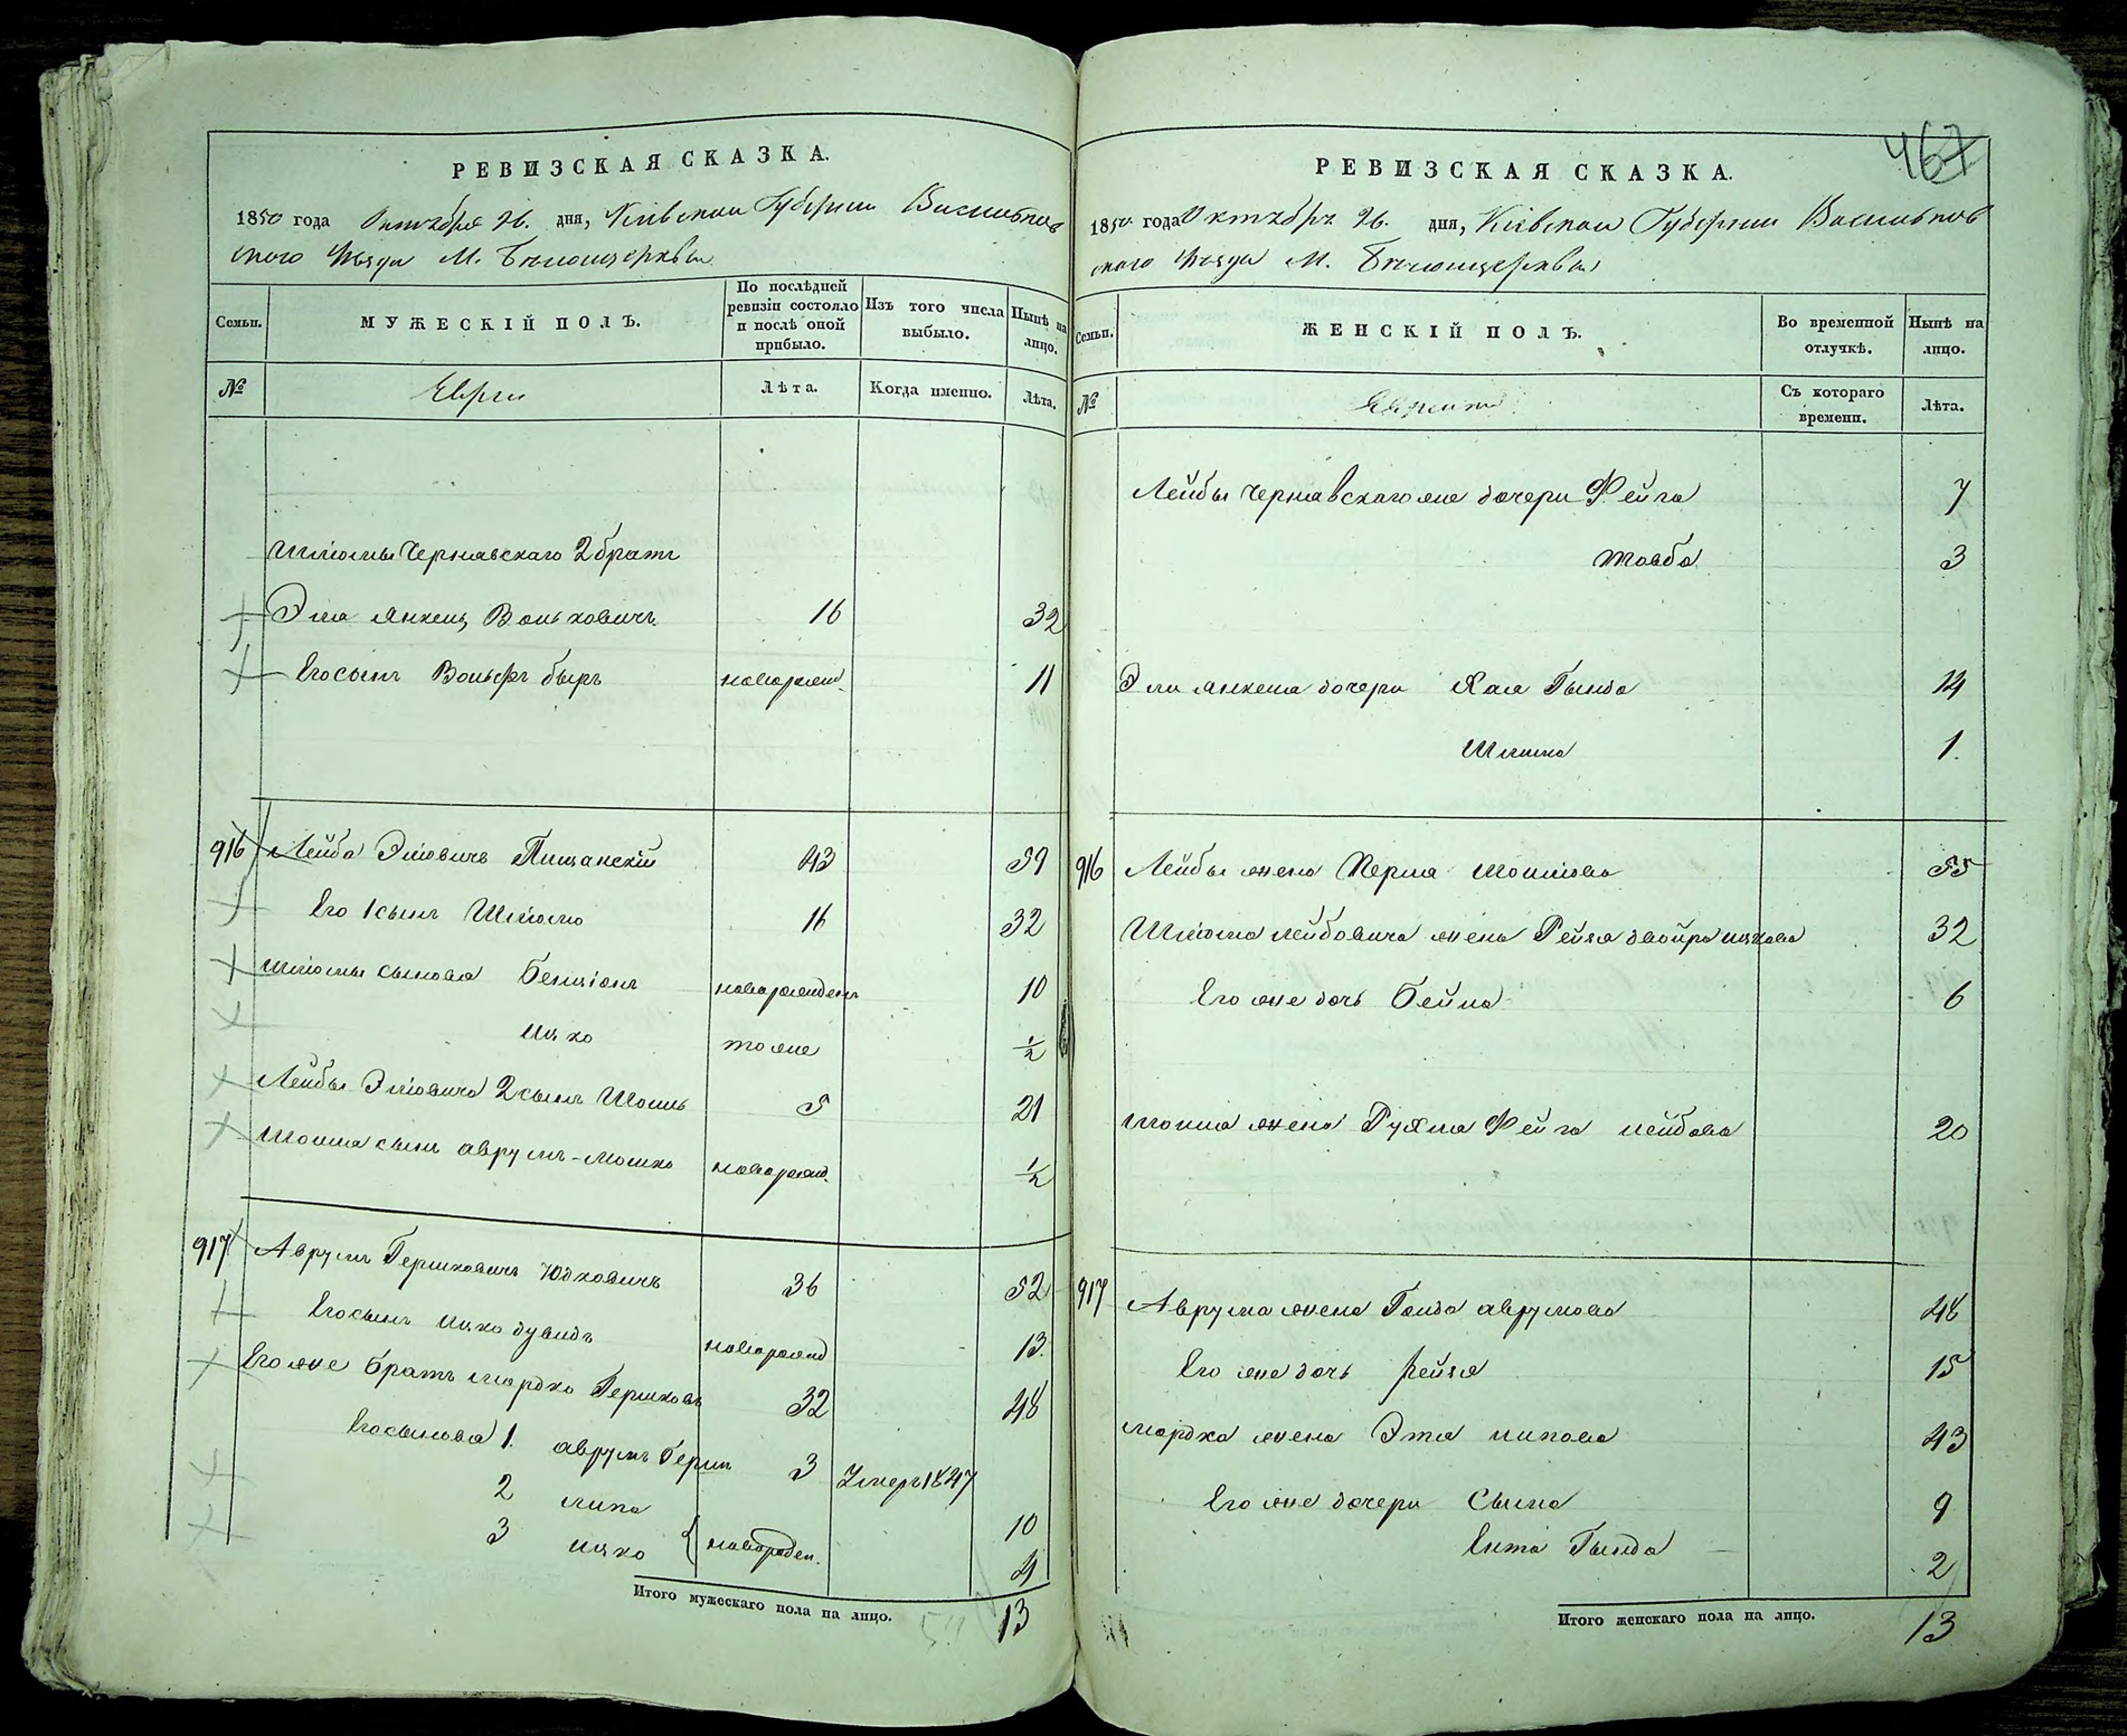 РЕВИЗСКАЯ СКАЗКА.
1850 года Октября 26. дня, Кіевской Губерніи Васильков
скаго Уѣзда М. Бѣлоцерквы
Семьи. МУЖЕСКІЙ ПОЛЪ. По послѣдней ревизіи состояло и послѣ оной прибыло. Изъ того числа выбыло. Нынѣ на лицо.
№ Евреи Лѣта. Когда именно. Лѣта.
Шліомы Чернавскаго 2 братъ
Эля Янкель Вольковичъ 16 32
Его сынъ Вольфъ беръ новорожд. 11
916 Лейба Эліовичъ Пищанскій 43 59
Его 1 сынъ Шліомо 16 32
Шліомы сыновья Бенціонъ новорожденъ 10
Ицко тоже ½
Лейбы Эліовича 2 сынъ Шоиль 5 21
Шоиля сынъ аврумъ-мошко новорожд. ½
917 Аврумъ Гершковичъ Юдковичъ 36 52
Его сынъ ицко дувидъ новорожд 13.
Его же братъ мордко Гершковъ 32 48
Его сыновья 1. аврумъ Герш 3 Умеръ 1847
2 липа 10
3 ицко новорожден. 4
Итого мужескаго пола на лицо. 13
467
РЕВИЗСКАЯ СКАЗКА.
1850 года Октября 26. дня, Кіевской Губерніи Васильков
скаго Уѣзда М. Бѣлоцерквы
Семьи. ЖЕНСКІЙ ПОЛЪ. Во временной отлучкѣ. Нынѣ на лицо.
№ Еврейки Съ котораго времени. Лѣта.
Лейбы Чернавскаго же дочери Фейга 7
Товба 3
Эли Янкеля дочери Хая Гинда 14
1.
916 Лейбы жена Перля шоилова 55
Шліома лейбовича жена Рейзя двойра ицкова 32
Его же дочь Бейла 6
шоиля жена Рухля Фейга лейбова 20
917 Аврума жена аврумова 48
Его же дочь Рейзя 15
мордка жена Этя липова 43
Его же дочери Сыма 9
Ента Гинда 2
Итого женскаго пола на лицо. 13